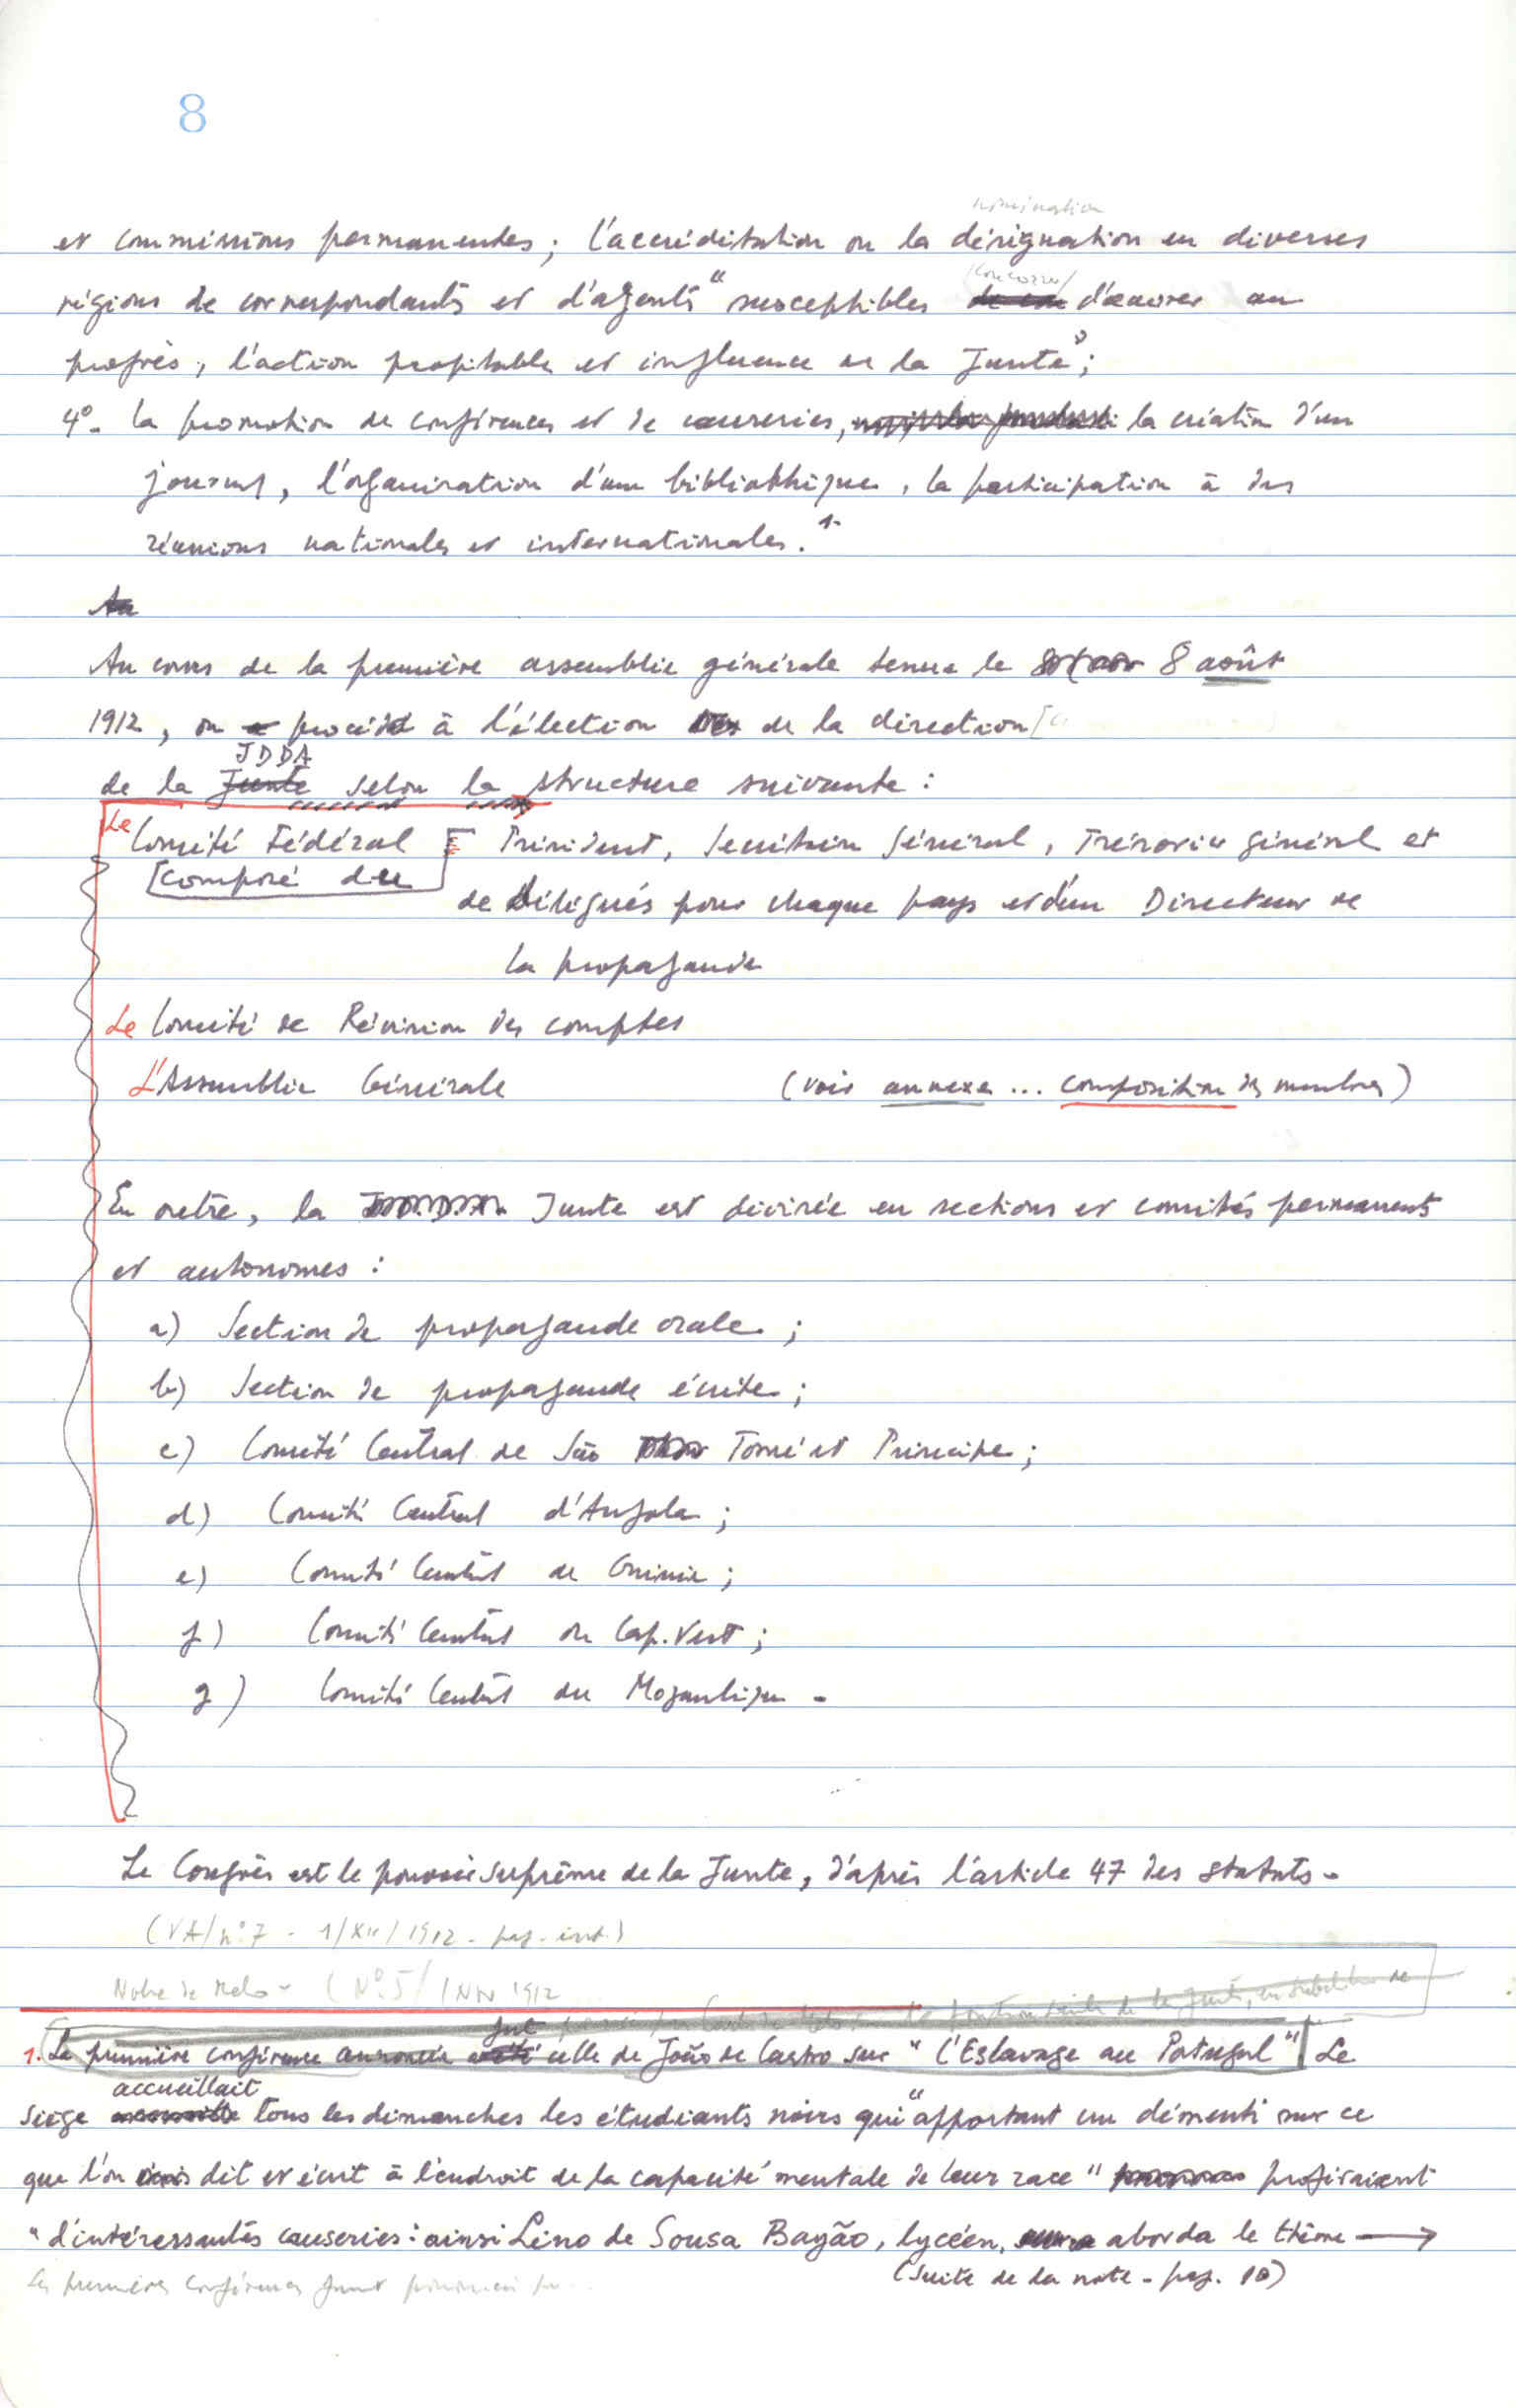 8
nomination
et commissions permanentes ; l'accréditation ou la désignation en diverses
régions de correspondants et d'agents "susceptibles d'œuvrer au
progrès, l'action profitable et influence de la Junte" ;
4º - la promotion de conférences et de causeries, la création d'un
journal, l'organisation d'une bibliothèque, la participation à des
réunions nationales et internationales. 1-
Au
Au cours de la première assemblée générale tenue le 8 août
1912, on a procédé à l'élection de la direction
JDDA
de la Junte selon la structure suivante :
Le Comité Fédéral [ Président, Secrétaire Général, Trésorier général et
[composé du] de Délégués pour chaque pays et d'un Directeur de
la propagande
Le Comité de Révision des comptes
L'Assemblée Générale (voir annexe ... composition des membres)
En outre, la Junte est divisée en sections et comités permanents
et autonomes :
a) Section de propagande orale ;
b) Section de propagande écrite ;
c) Comité Central de São Tomé et Principe ;
d) Comité Central d'Angola ;
e) Comité Central de Guinée ;
f) Comité Central du Cap. Vert ;
g) Comité Central du Mozambique -
Le Congrès est le pouvoir suprême de la Junte, d'après l'article 47 des statuts -
(VA/nº 7 - 1/XII/1912 - pag. int.)
(Nº 5/ 1 Nov 1912
fut
1. La première conférence annoncée celle de João de Castro sur "L'Esclavage au Portugal" Le
accueillait
siège tous les dimanches les étudiants noirs qui "apportant un démenti sur ce
que l'on dit et écrit à l'endroit de la capacité mentale de leur race" profiraient
"d'intéressantes causeries : ainsi Lino de Sousa Bayão, lycéen, aborda le thème →
(suite de la note - pag. 10)
Les premières conférences furent